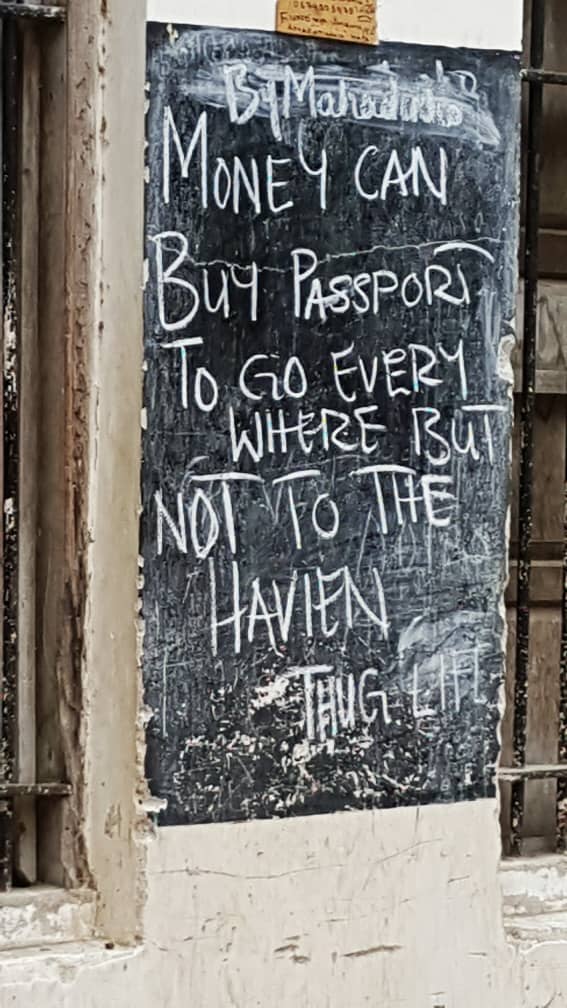 MONEY CAN
BUY PASSPORT
TO GO EVERY
WHERE BUT
NOT TO THE
HAVIEN
THUG LIFE